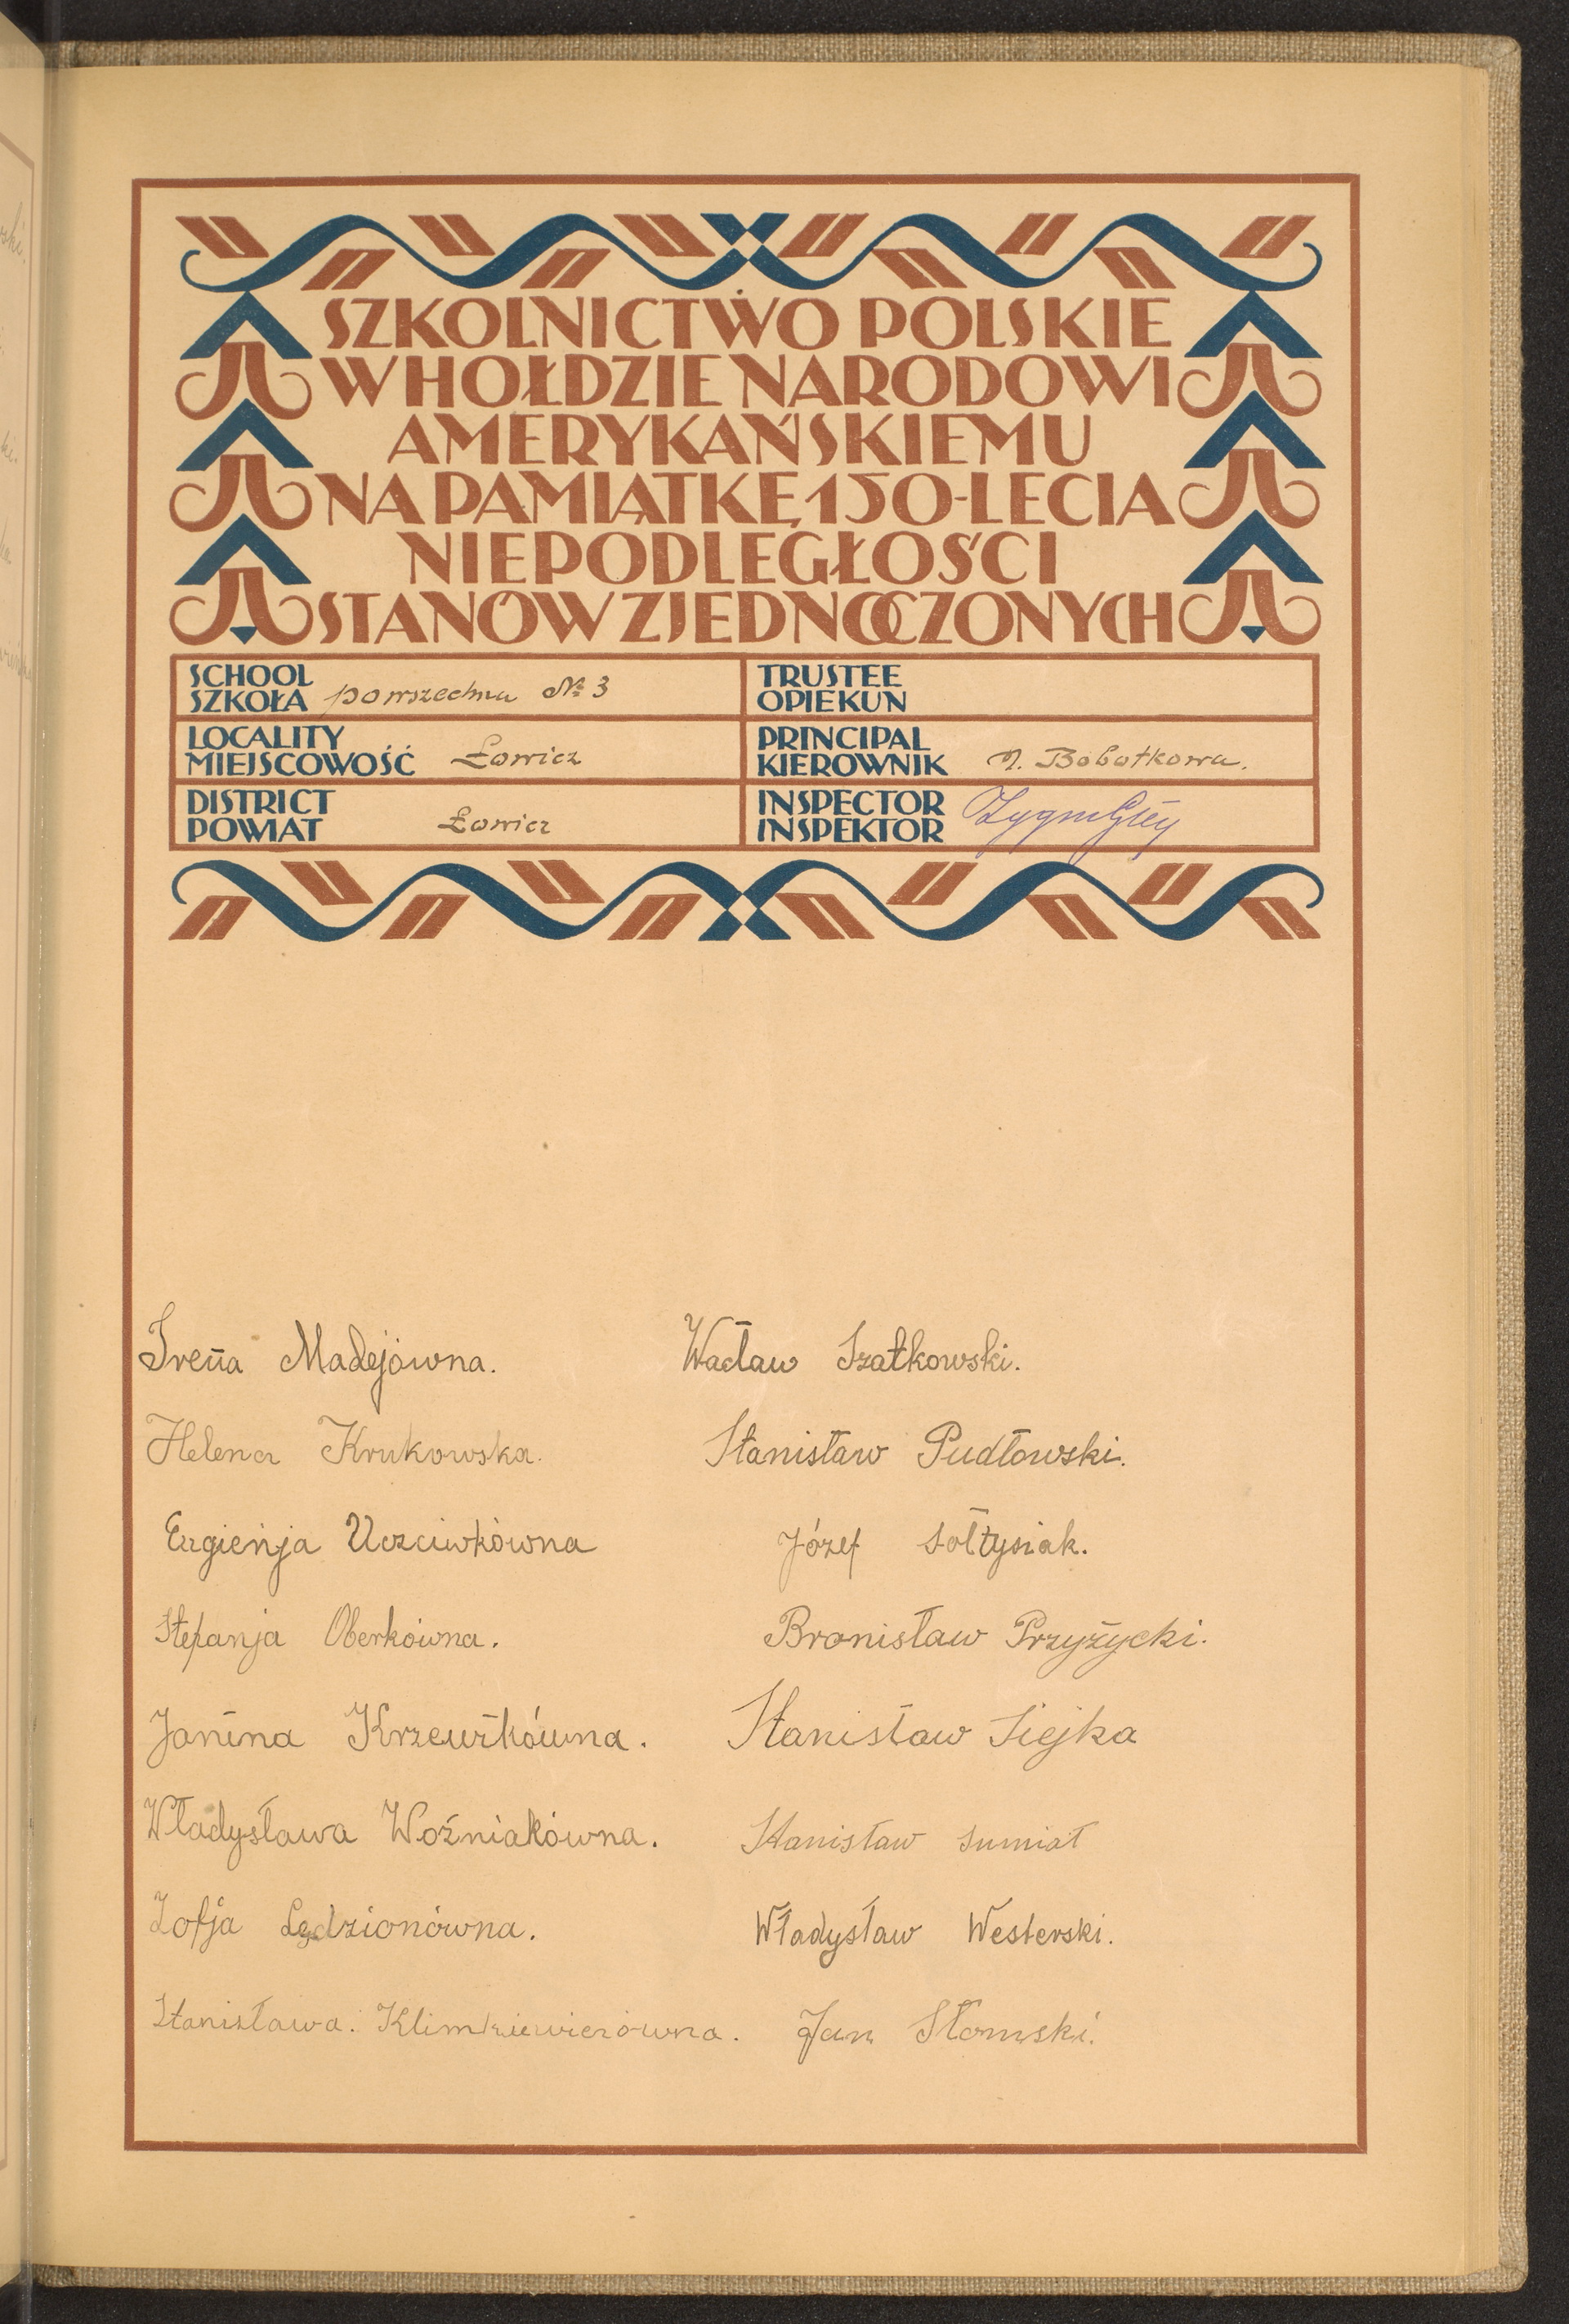 SZKOLNICTWO POLSKIE
W HOŁDZIE NARODOWI
AMERYKAŃSKIEMU
NA PAMIĄTKĘ 150-LECIA
NIEPODLEGŁOŚCI
STANÓW ZJEDNOCZONYCH
SCHOOL
SZKOŁA powszechna № 3
TRUSTEE
OPIEKUN
LOCALITY
MIEJSCOWOŚĆ Łowicz
PRINCIPAL
KIEROWNIK N. Bobotkowa.
DISTRICT
POWIAT Łowicz
INSPECTOR
INSPEKTOR
Irena Madejówna.
Wacław Szatkowski.
Helena Krukowska.
Stanisław Pudłowski.
Eugienja Uczciwkówna
Józef Sołtysiak.
Stefanja Oberkówna.
Bronisław Przyżycki.
Janina Krzewskówna.
Stanisław Siejka
Władysława Woźniakówna.
Stanisław Sumiał
Zofja Lędzionówna.
Władysław Westerski.
Stanisława. Klimkiewiczówna.
Jan Słomski.